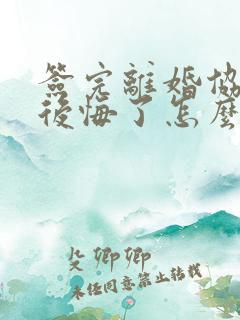 簽完離婚協
後悔了怎麼
殳卿卿
未經同意禁止轉載